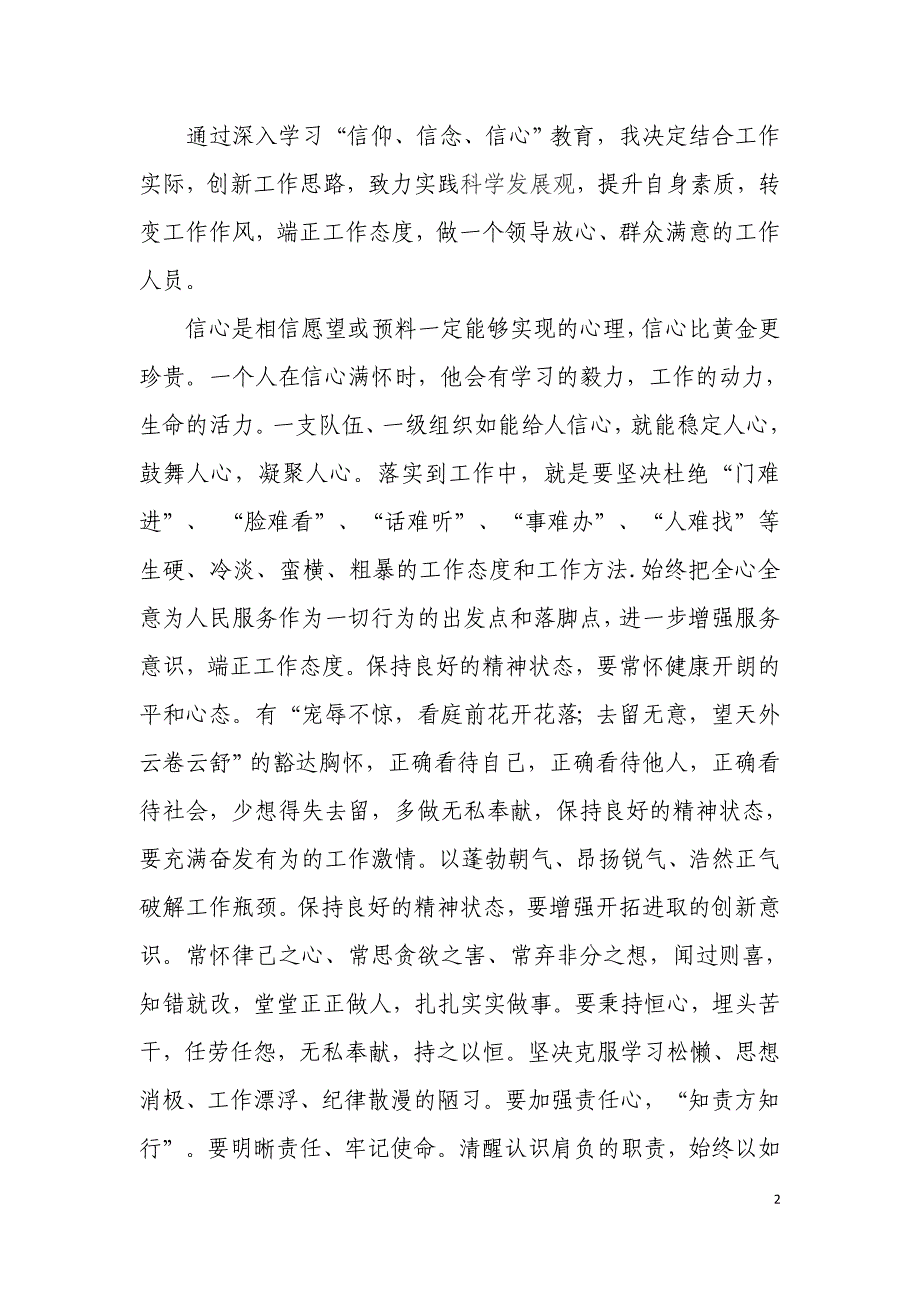 通过深入学习“信仰、信念、信心”教育，我决定结合工作
实际，创新工作思路，致力实践科学发展观，提升自身素质，转
变工作作风，端正工作态度，做一个领导放心、群众满意的工作
人员。
信心是相信愿望或预料一定能够实现的心理，信心比黄金更
珍贵。一个人在信心满怀时，他会有学习的毅力，工作的动力，
生命的活力。一支队伍、一级组织如能给人信心，就能稳定人心，
鼓舞人心，凝聚人心。落实到工作中，就是要坚决杜绝“门难
进”、 “脸难看”、“话难听”、“事难办”、“人难找”等
生硬、冷淡、蛮横、粗暴的工作态度和工作方法.始终把全心全
意为人民服务作为一切行为的出发点和落脚点，进一步增强服务
意识，端正工作态度。保持良好的精神状态，要常怀健康开朗的
平和心态。有“宠辱不惊，看庭前花开花落;去留无意，望天外
云卷云舒”的豁达胸怀，正确看待自己，正确看待他人，正确看
待社会，少想得失去留，多做无私奉献，保持良好的精神状态，
要充满奋发有为的工作激情。以蓬勃朝气、昂扬锐气、浩然正气
破解工作瓶颈。保持良好的精神状态，要增强开拓进取的创新意
识。常怀律己之心、常思贪欲之害、常弃非分之想，闻过则喜，
知错就改，堂堂正正做人，扎扎实实做事。要秉持恒心，埋头苦
干，任劳任怨，无私奉献，持之以恒。坚决克服学习松懒、思想
消极、工作漂浮、纪律散漫的陋习。要加强责任心，“知责方知
行”。要明晰责任、牢记使命。清醒认识肩负的职责，始终以如
2